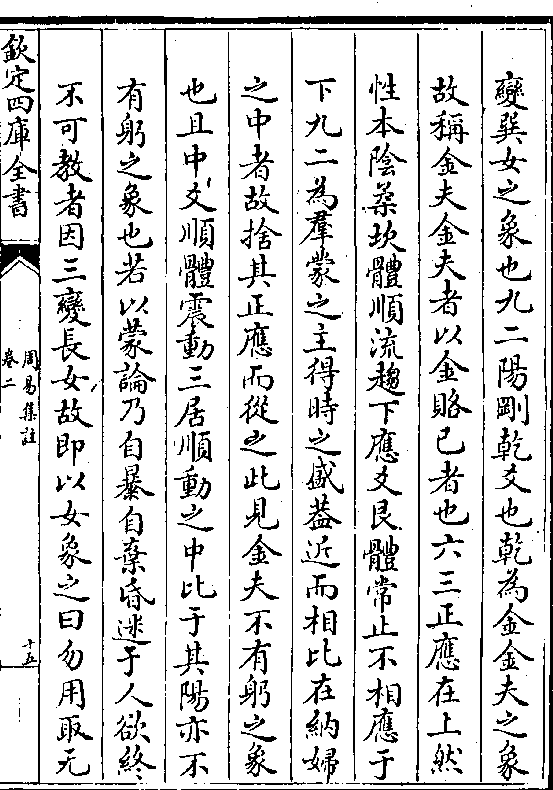 變巽女之象也九二陽剛乾爻也乾為金金夫之象
故稱金夫金夫者以金賂己者也六三正應在上然
性本陰柔坎體順流趨下應爻艮體常止不相應于
下九二為羣蒙之主得時之盛葢近而相比在納婦
之中者故捨其正應而從之此見金夫不有躬之象
也且中爻順體震動三居順動之中比于其陽亦不
有躬之象也若以蒙論乃自暴自棄昏迷于人欲終
不可教者因三變長女故即以女象之曰勿用取无
欽定四庫全書
周易集註
卷二
十五